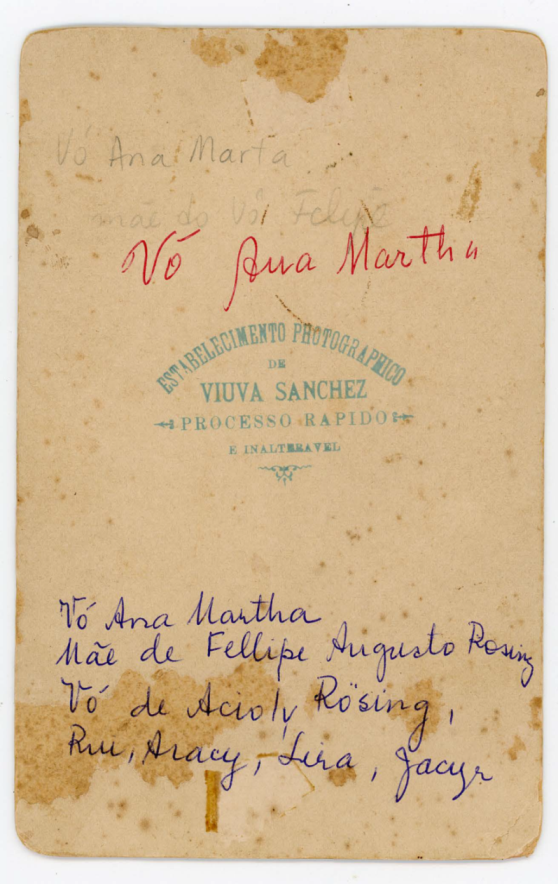 Vó Ana Marta
mãe do Vô Felipe
Vó Ana Martha
ESTABELECIMENTO PHOTOGRAPHICO
DE
VIUVA SANCHEZ
PROCESSO RAPIDO
E INALTERAVEL
Vó Ana Martha
Mãe de Fellipe Augusto Rosing
Vó de Acioly Rösing,
Rui, Aracy, Lira, Jacyr